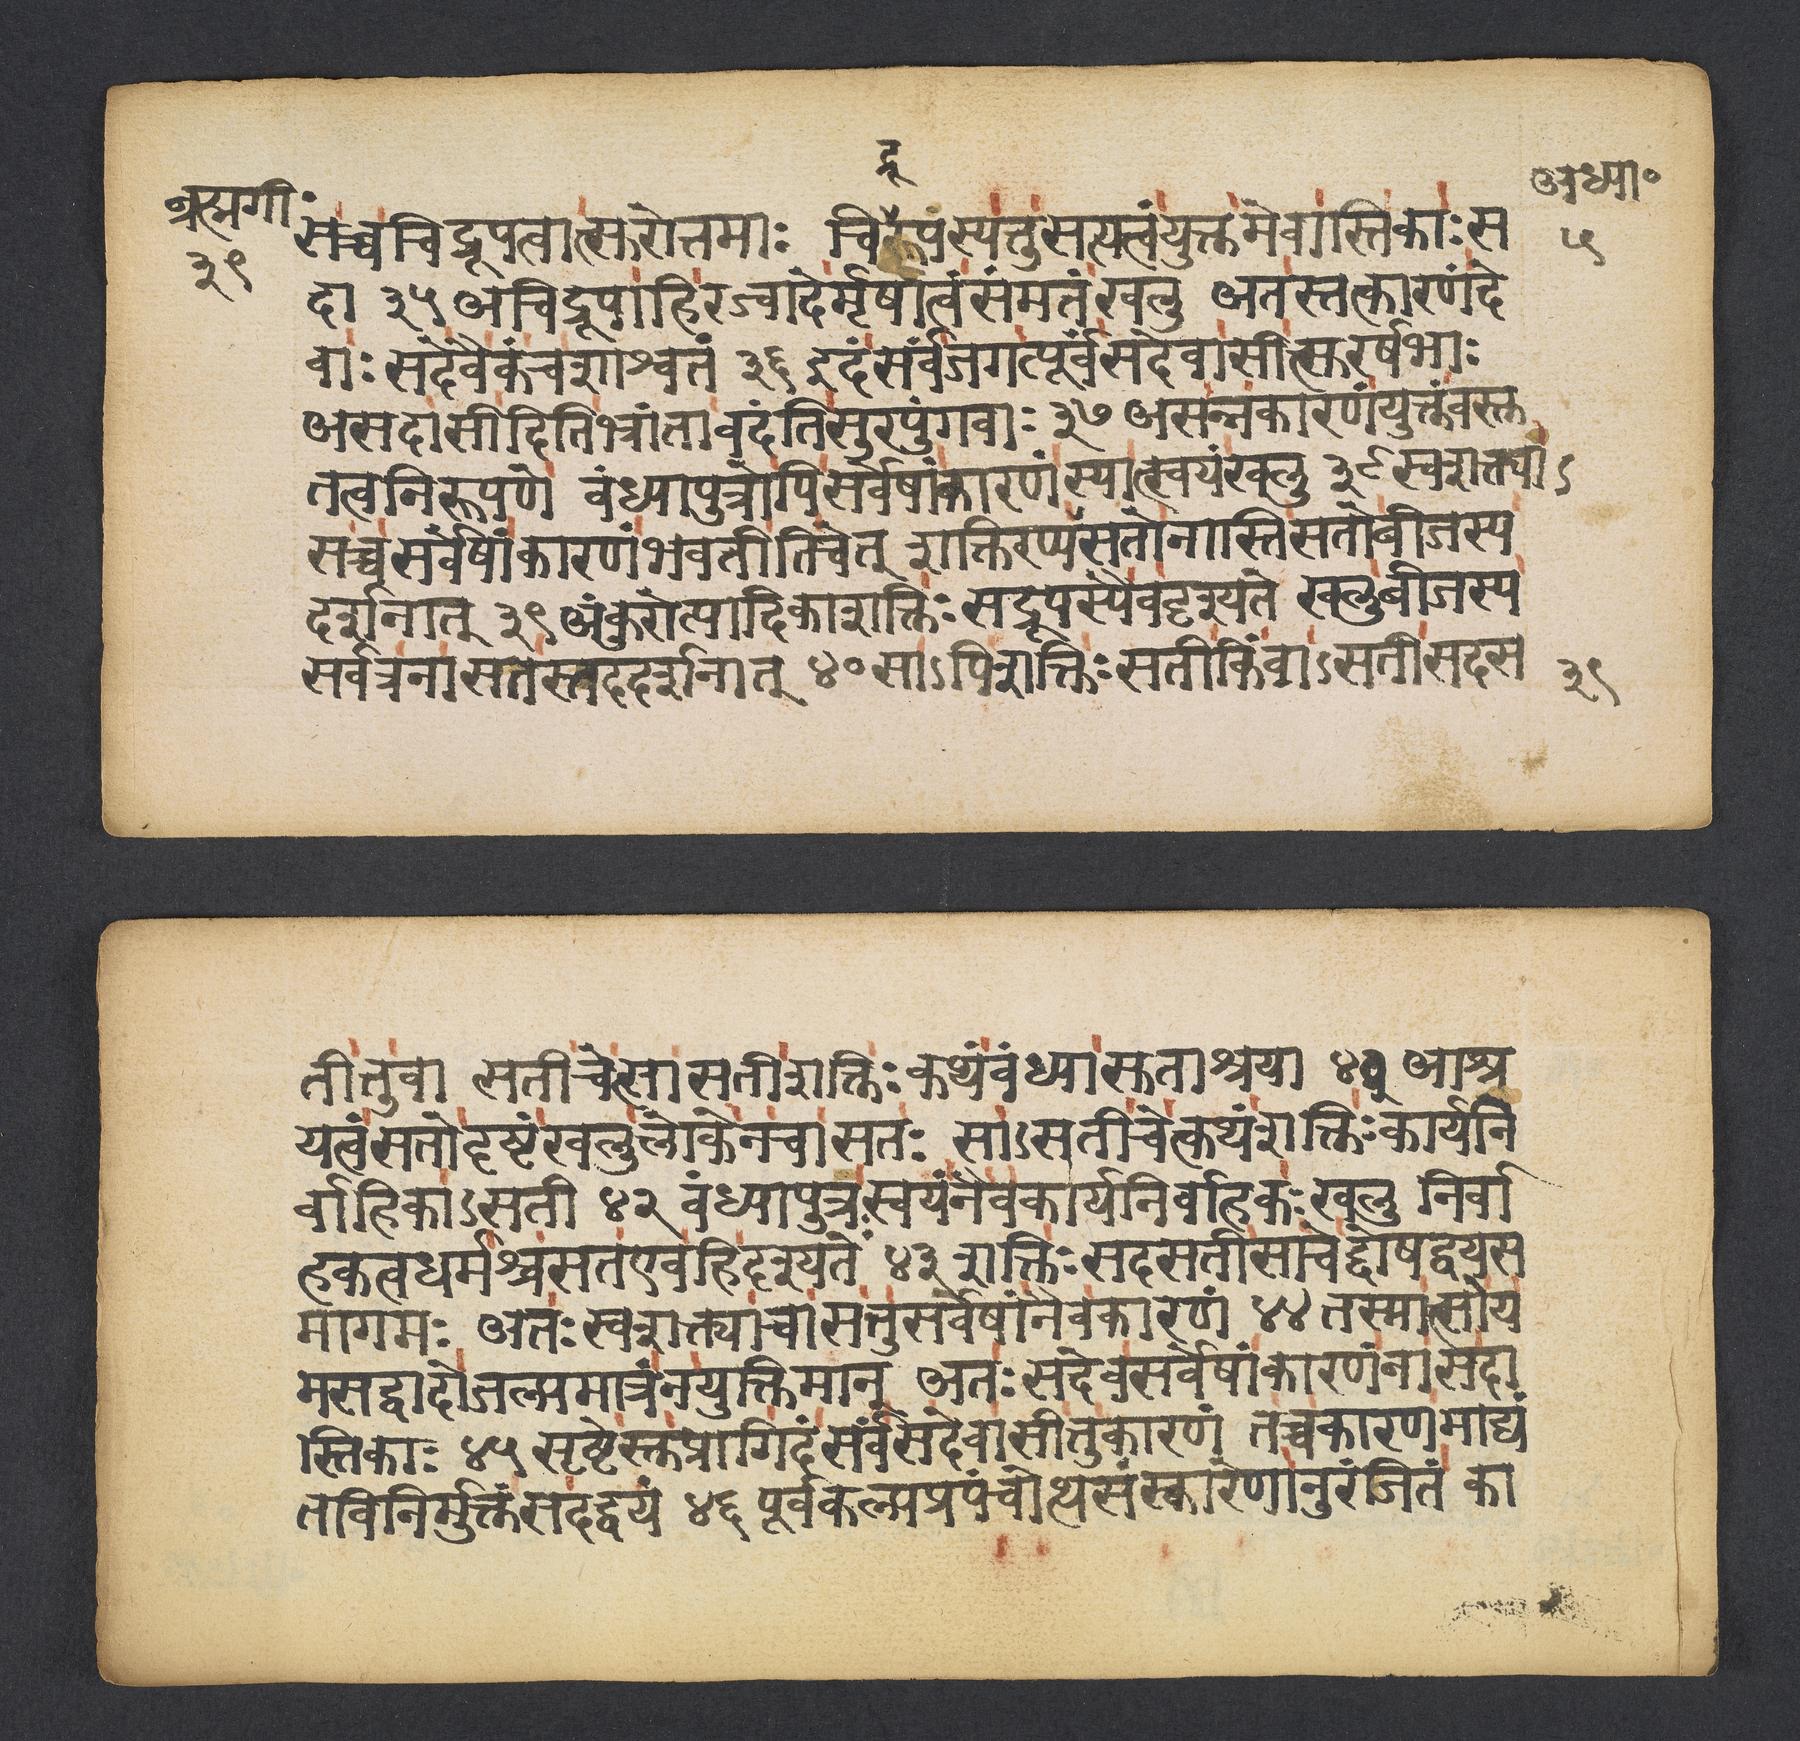 द्रू
ब्रह्मगी॰
३९
अध्या॰
५
सच्चचिद्रूपत्वात्सुरोत्तमाः चिद्रूपस्यतुसत्यत्वंयुक्तमेवास्तिकाःस
दा ३५ अचिद्रूपाहिरज्वादेर्मृषात्वंसंमतंखलु अतस्तत्कारणंदे
वाःसदेवैकंचशाश्वतं ३६ इदंसर्वंजगत्पूर्वंसदेवासीत्सुरर्षभाः
असदासीदितिभ्रांतावदंतिसुरपुंगवाः ३७ असन्नकारणंयुक्तंवस्तु
तत्वनिरूपणे वंध्यापुत्रोपिसर्वेषांकारणंस्यात्स्वयंखलु ३८ स्वशक्त्याऽ
सच्चसर्वेषांकारणंभवतीतिचेत् शक्तिरप्यसतोनास्तिसतोबीजस्य
दर्शनात् ३९ अंकुरोत्पादिकाशक्तिःसद्रूपस्यैवदृश्यते खलुबीजस्य
सर्वत्रनासतस्तददर्शनात् ४० साऽपिशक्तिःसतीकिंवाऽसतीसदस
३९
तीतुवा सतीचेत्सासतीशक्तिःकथंवंध्यासुताश्रया ४१ आश्र
यत्वंसतोदृष्टंखलुलोकेनचासतः साऽसतीचेत्कथंशक्तिःकार्यनि
र्वाहिकाऽसती ४२ वंध्यापुत्रःस्वयंनैवकार्यनिर्वाहकःखलु निर्वा
हकत्वधर्मश्चसतएवहिदृश्यते ४३ शक्तिःसदसतीसाचेद्दोषद्वयस
मागमः अतःस्वशक्त्याचासत्तुसर्वेषांनैवकारणं ४४ तस्मात्सोय
मसद्वादोजल्पमात्रंनयुक्तिमान् अतःसदेवसर्वेषांकारणंनासदा
स्तिकाः ४५ सृष्टेस्तुप्रागिदंसर्वंसदेवासीत्तुकारणं तच्चकारणमाद्यं
तविनिर्मुक्तंसदद्वयं ४६ पूर्वकल्पप्रपंचोत्थसंस्कारेणानुरंजितं का